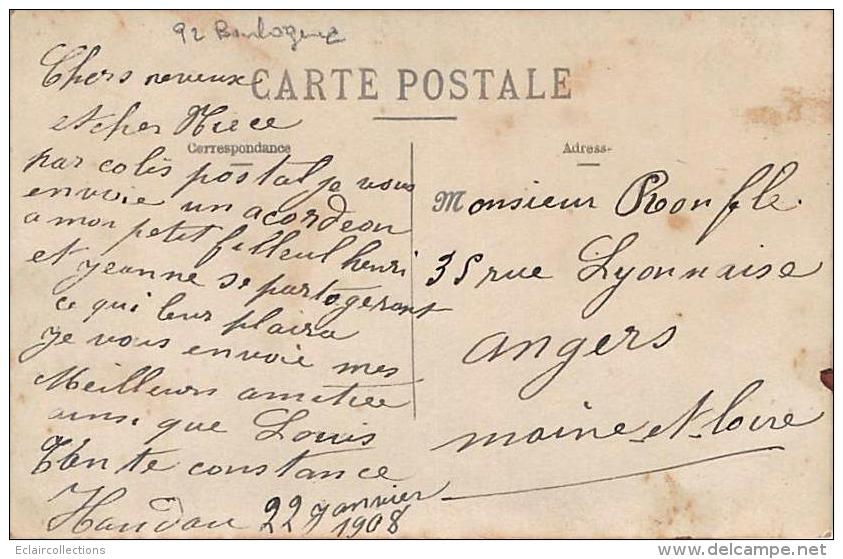 92 Boulogne
CARTE POSTALE
Correspondance
Adresse
Chers neveux
et cher Niece
par colis postal je vous
envoie un acordeon
a mon petit filleul henri
et jeanne se partogeront
ce qui leur plaira
je vous envoie mes
Meilleurs amitiee
ainsi que Louis
Tente constance
22 janvier
1908
Monsieur Ronfle
35 rue Lyonnaise
angers
maine-et-loire
Eclaircollections
www.delcampe.net